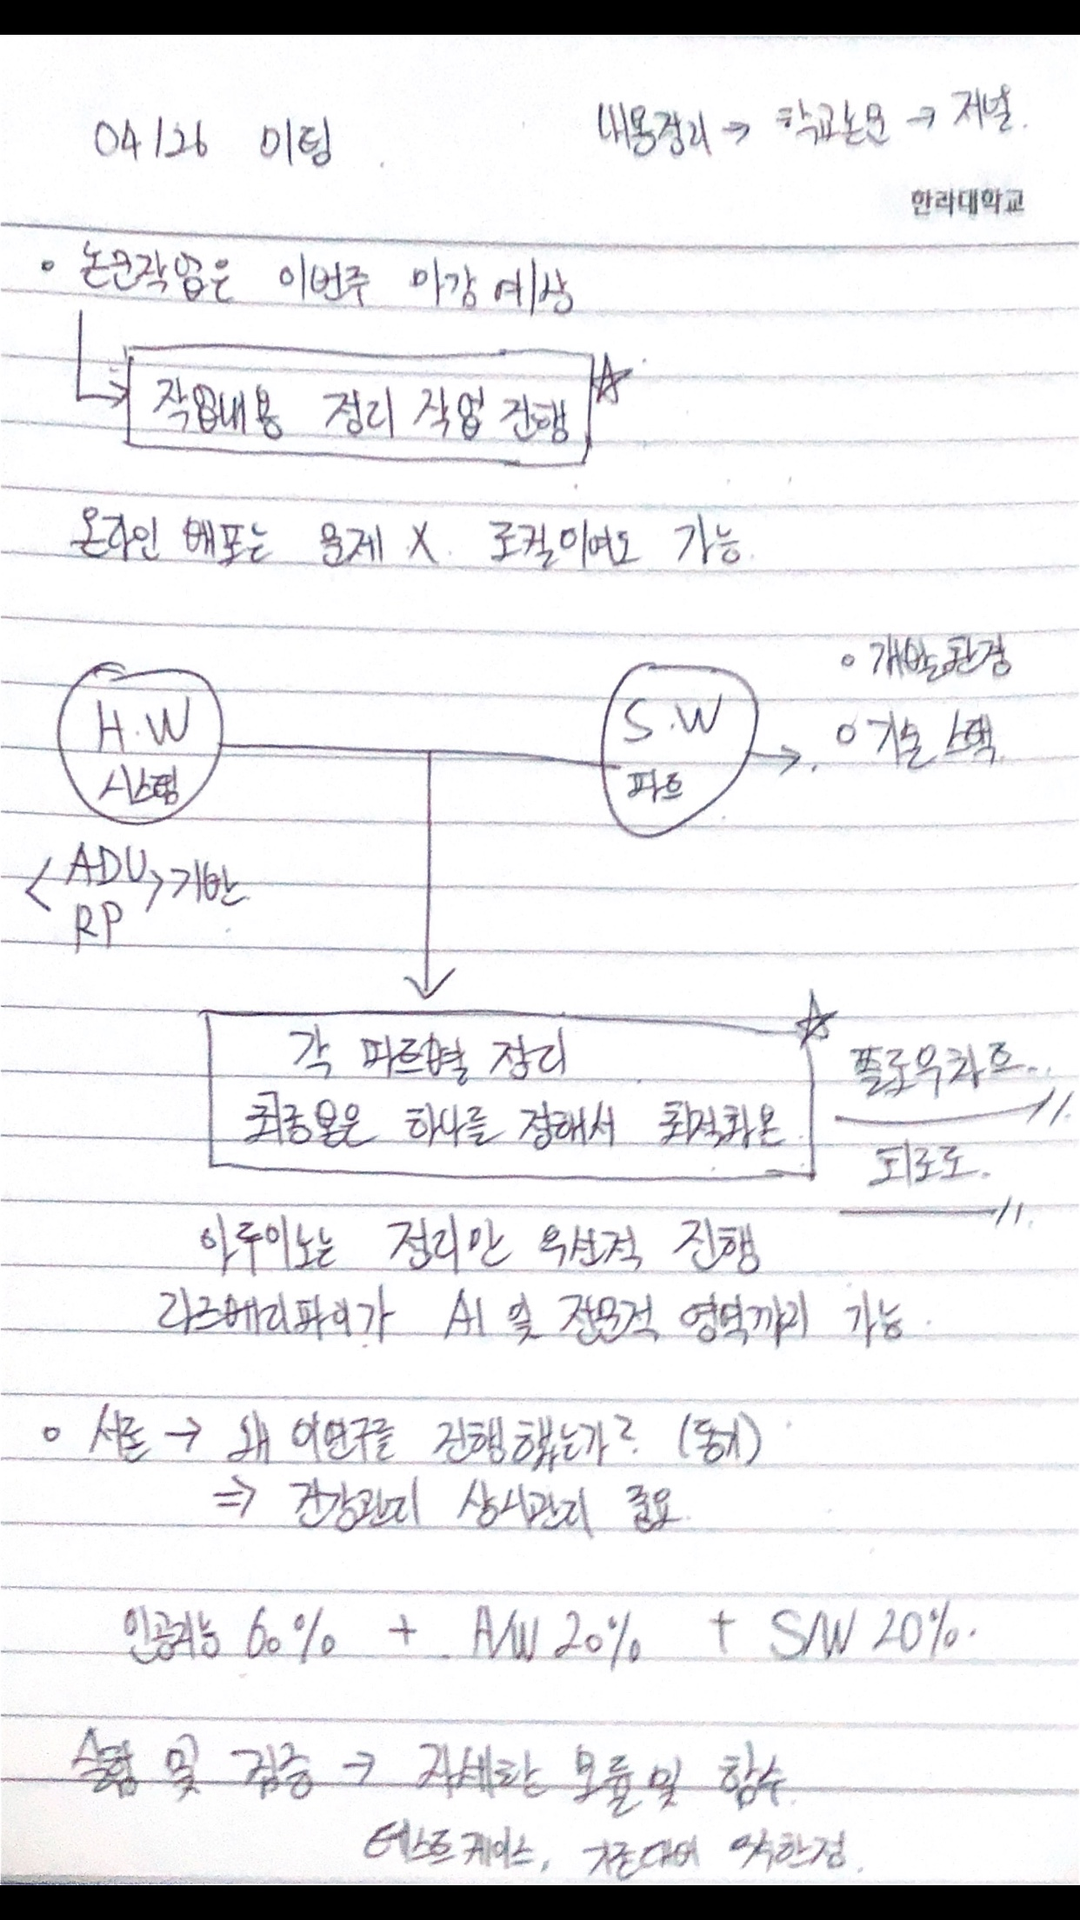 04/26 미팅
내용정리 → 학교논문 → 저널.
한라대학교
• 논문작업은 이번주 마감 예상
작업내용 정리 작업 진행 ☆
온라인 배포는 문제 X. 로컬이여도 가능.
H.W
시스템
S.W
파트
• 개발환경
• 기술 스택
<ADU
RP> 기반
각 파트별 정리
최종물은 하나를 정해서 최적화온 ☆
플로우차트..
회로도.
아두이노는 정리만 우선적 진행
라즈베리파이가 AI 및 전문적 영역까지 가능.
• 서론 → 왜 이연구를 진행했는가? (동기)
⇒ 건강관리 상시관리 중요.
인공지능 60% + H/W 20% + S/W 20%.
실험 및 검증 → 자세한 모듈 및 함수.
테스트케이스, 기존대비